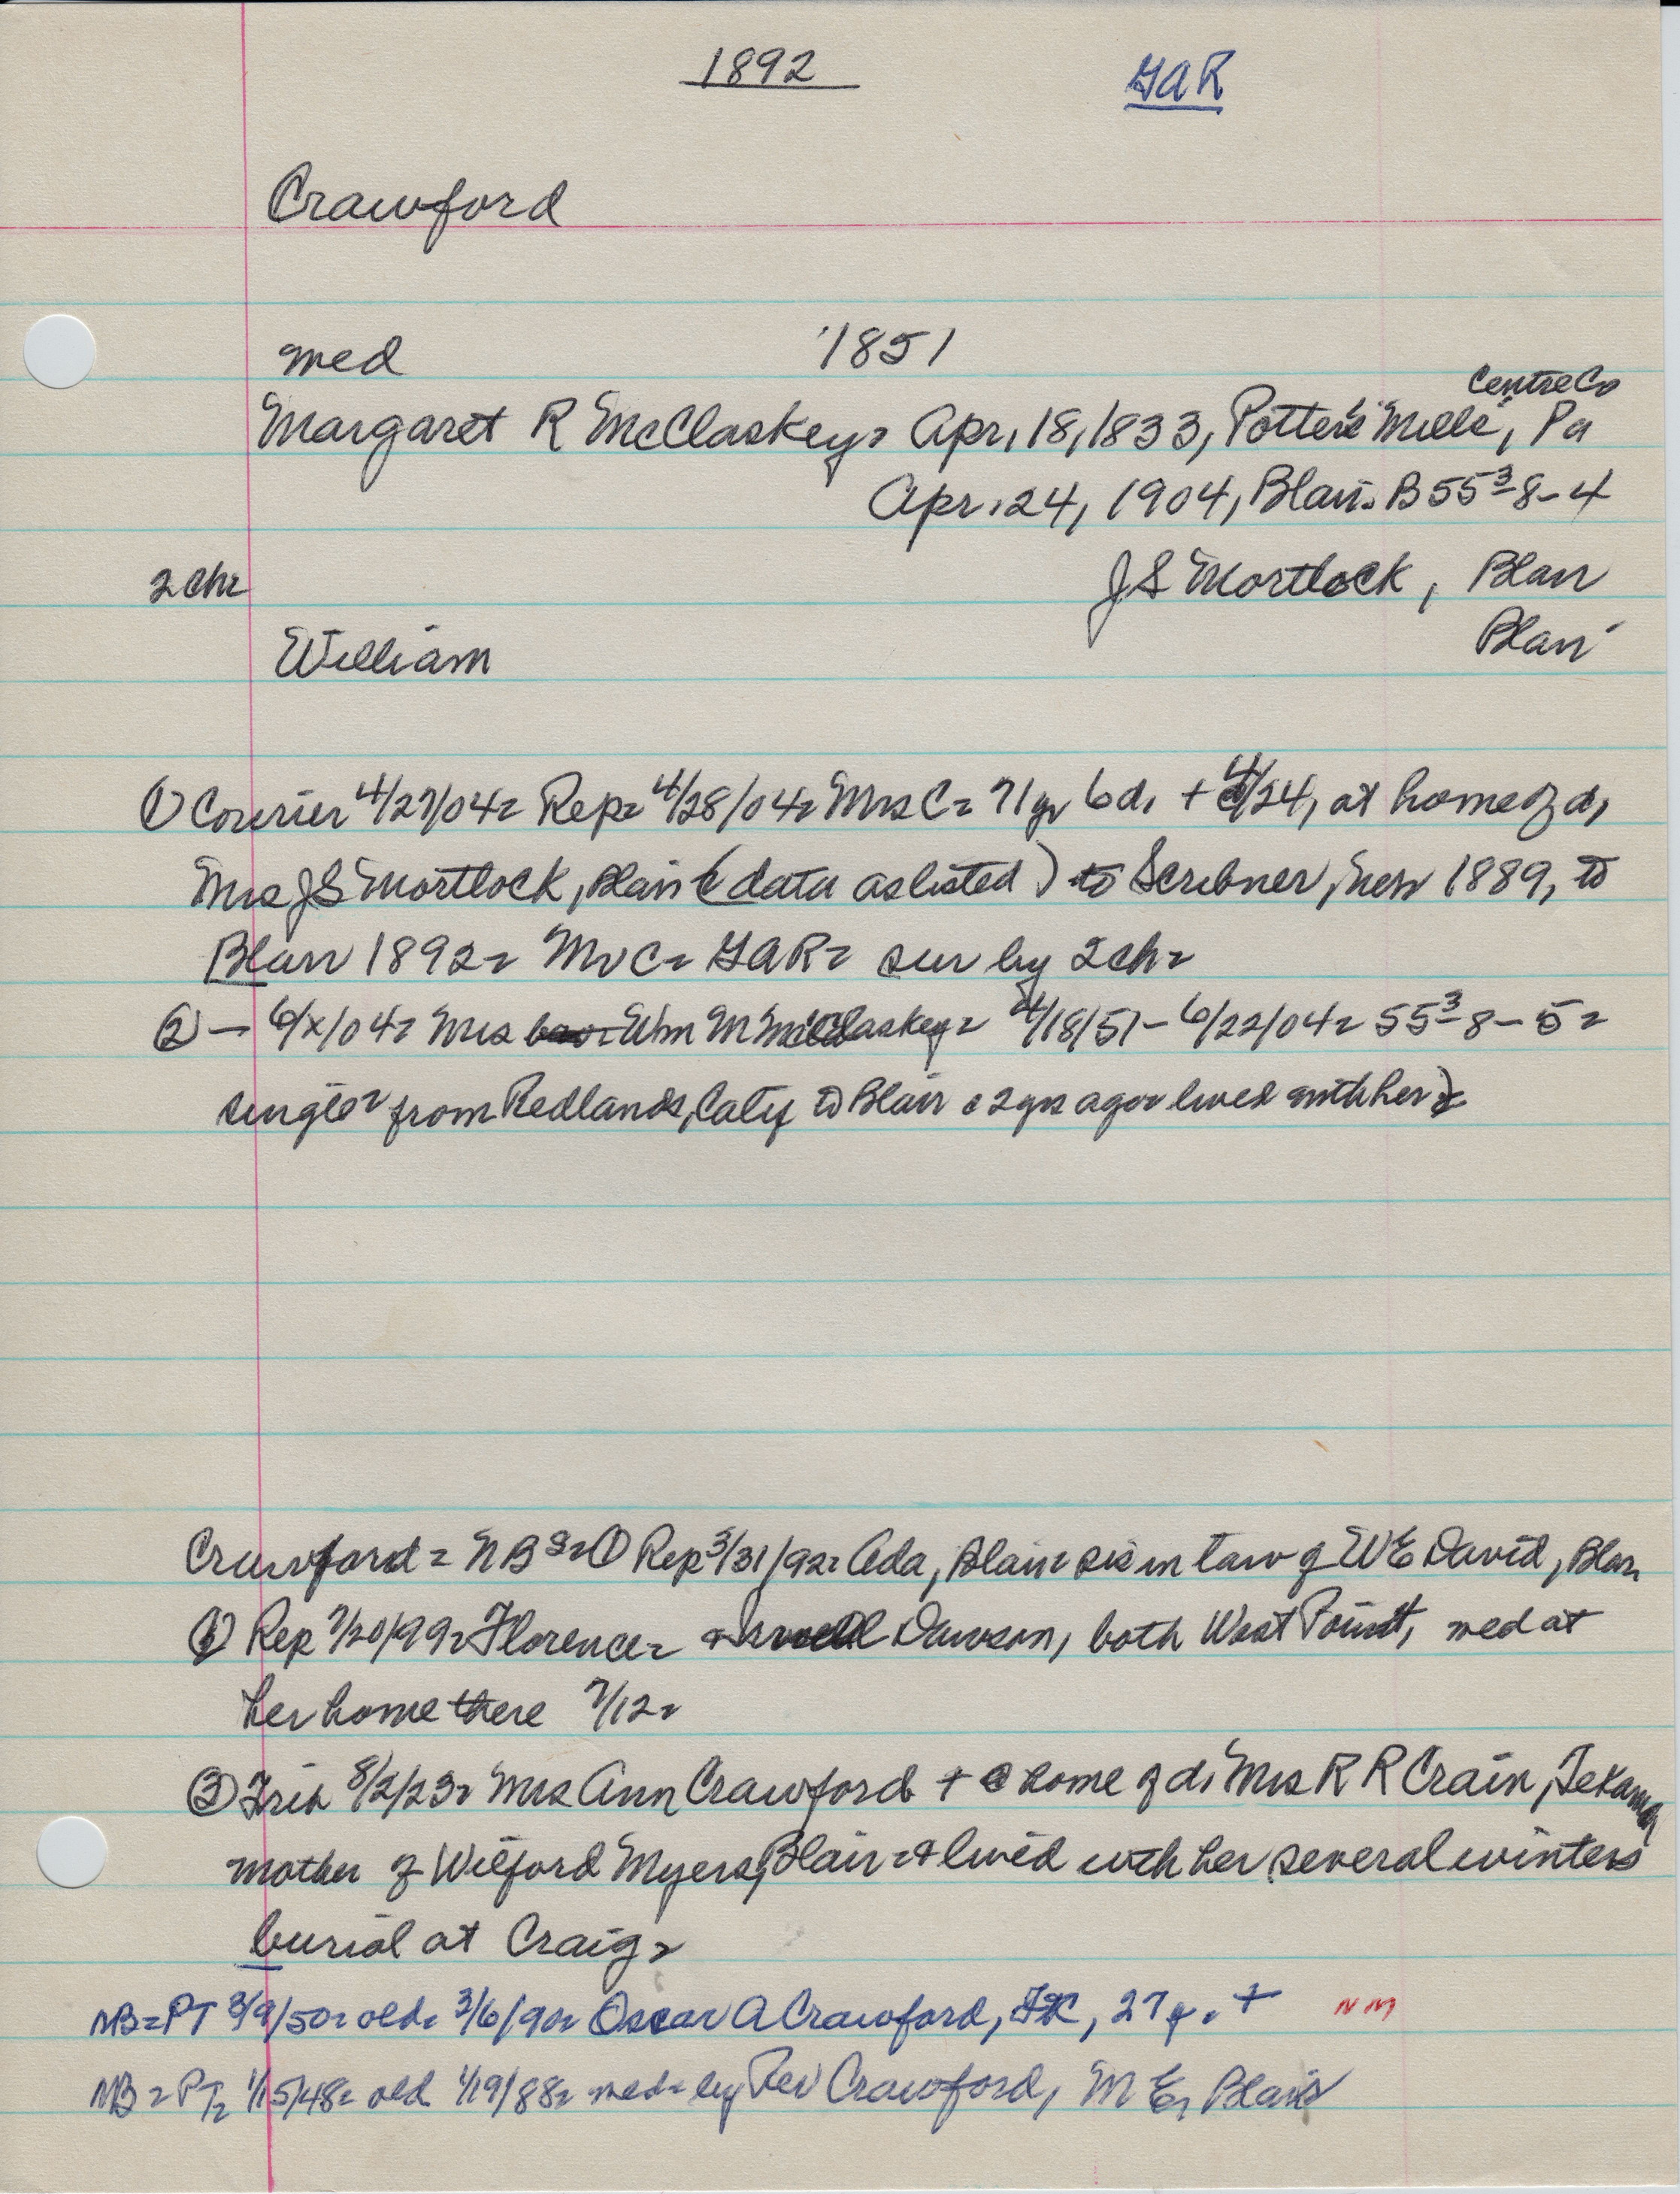 1892 GAR
Crawford
med 1851
Centre Co
Margaret R McClaskey= Apr. 18, 1833, Potters Mills, Pa
Apr. 24, 1904, Blair. B 55³-8-4
2 ch= J S Mortlock, Blair
William Blair
① Courier 4/27/04= Rep= 4/28/04= Mrs C= 71 yr 6 d. + 4/24, at home of d,
Mrs J S Mortlock, Blair (data as listed) to Scribner, 1889, to
Blair 1892= Mr C= GAR= sur by 2 ch=
② - 6/x/04= Mrs Wm M McClaskey= 4/18/51 - 6/22/04= 55³-8-5=
single= from Redlands, Calif to Blair c 2 yrs ago= lived with her
Crawford= NB ① Rep 3/31/92= Ada, Blair= sis in law of W E David, Blair
Rep 7/20/99= Florence= + Dawson, both West Point, med at
her home there 7/12=
③ 8/2/23= Mrs Ann Crawford + @ home of d. Mrs R R Crain, Tekamah
mother of Wilford Myers, Blair= + lived with her several winters
burial at Craig=
NB=PT 3/9/50= old= 3/6/90= Oscar A Crawford, 27 y. + NM
NB=PT= 1/15/48= old 1/19/88= med= by Rev Crawford, M E, Blair